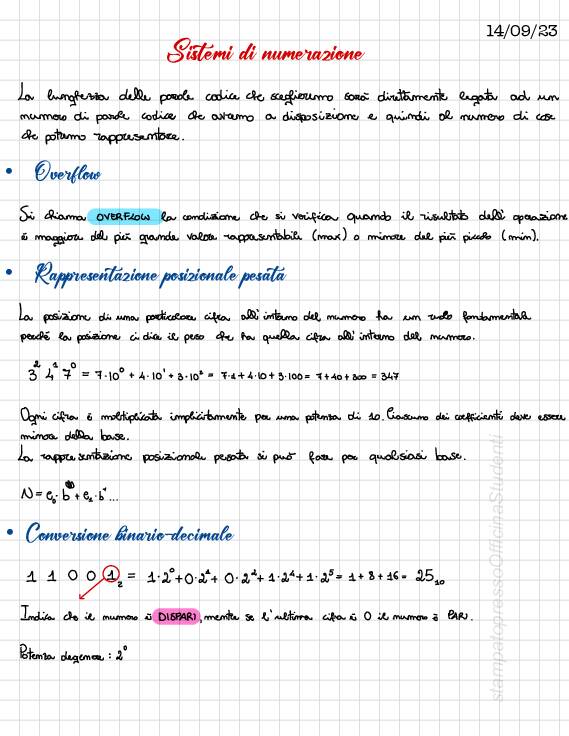 14/09/23
Sistemi di numerazione
La lunghezza delle parole codice che sceglieremo sarà direttamente legata ad un
numero di parole codice che avremo a disposizione e quindi al numero di cose
che potremo rappresentare.
• Overflow
Si chiama OVERFLOW la condizione che si verifica quando il risultato dell'operazione
è maggiore del più grande valore rappresentabile (max) o minore del più piccolo (min).
• Rappresentazione posizionale pesata
La posizione di una particolare cifra all'interno del numero ha un ruolo fondamentale
perché la posizione ci dice il peso che ha quella cifra all'interno del numero.
3² 4¹ 7⁰ = 7·10⁰ + 4·10¹ + 3·10² = 7·1 + 4·10 + 3·100 = 7+40+300 = 347
Ogni cifra è moltiplicata implicitamente per una potenza di 10. Ciascuno dei coefficienti deve essere
minore della base.
La rappresentazione posizionale pesata si può fare per qualsiasi base.
N = c₀·b⁰ + c₁·b¹...
• Conversione binario-decimale
1 1 0 0 1₂ = 1·2⁰+0·2¹+ 0·2²+1·2⁴+1·2⁵= 1+8+16= 25₁₀
Indica che il numero è DISPARI, mentre se l'ultima cifra è 0 il numero è PARI.
Potenza degenere : 2⁰
stampelopressoOfficinaStudenti